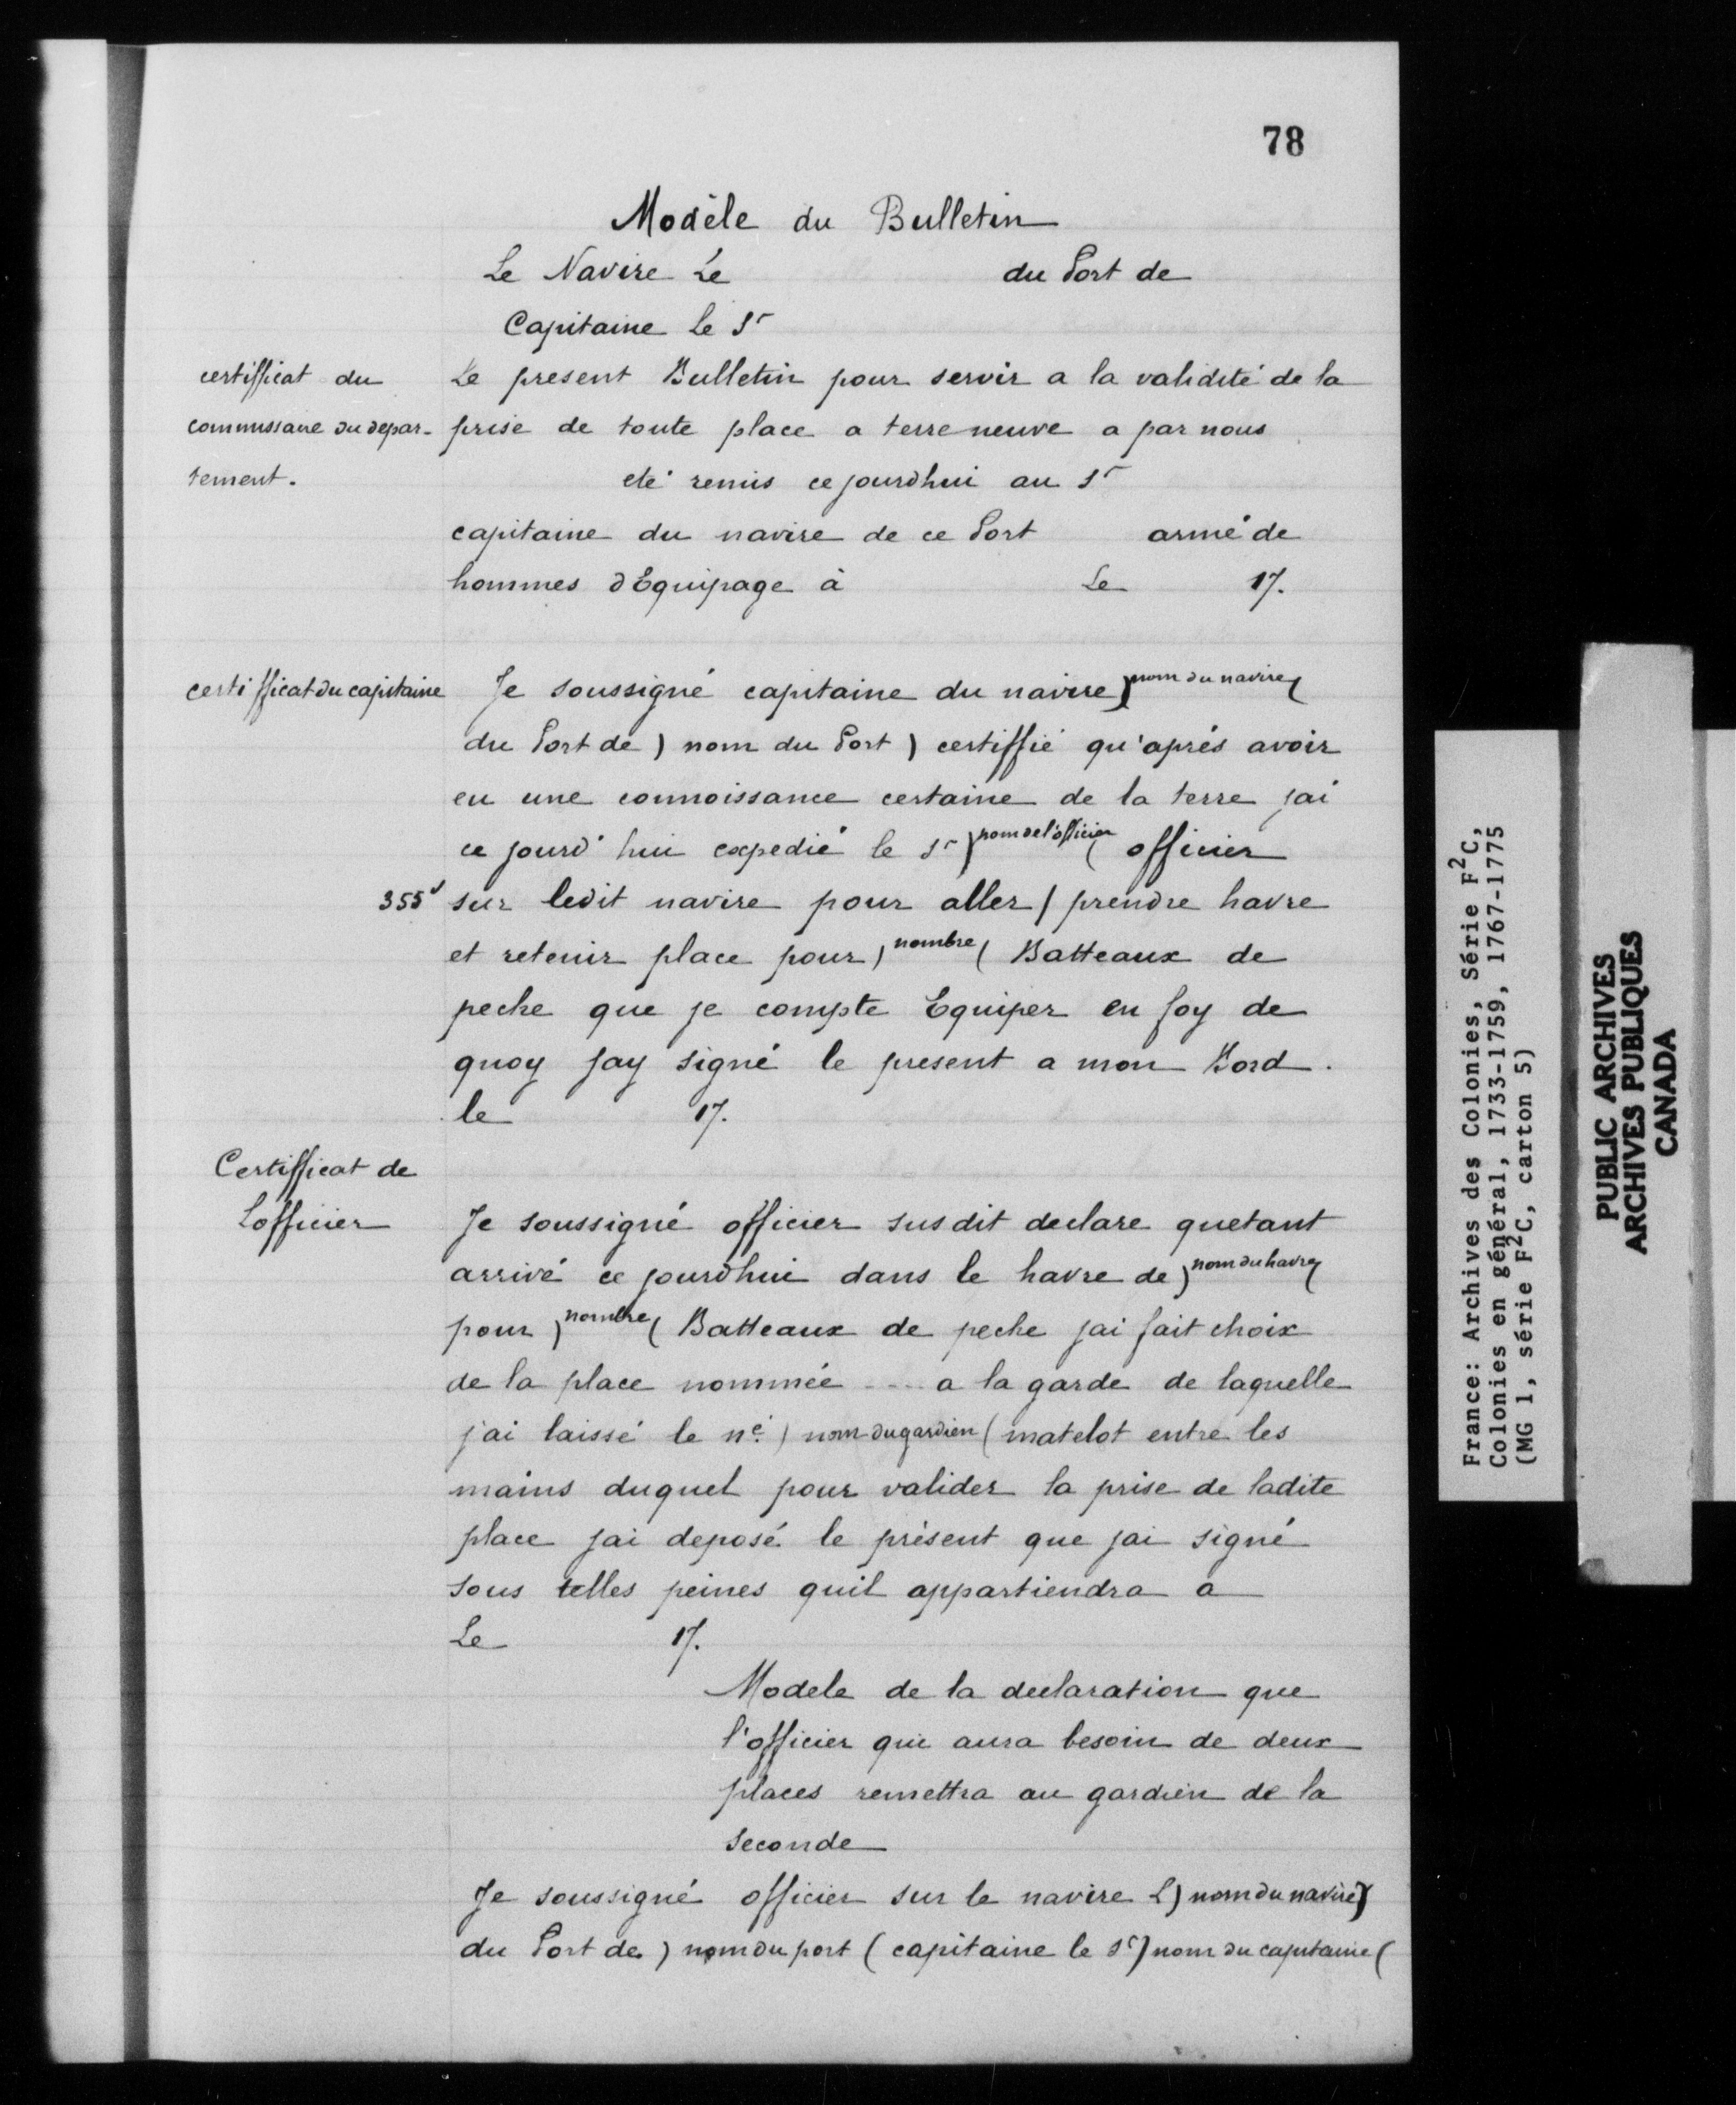 78
Modèle du Bulletin
Le Navire Le du Port de
Capitaine le Sr
certifficat du
commissaire du depar-
tement.
Le present Bulletin pour servir a la validité de la
prise de toute place a terre neuve a par nous
eté remis ce jourdhui au Sr
capitaine du navire de ce Port armé de
hommes d'Equipage à Le 17.
certifficat du capitaine
Je soussigné capitaine du navire ) nom du navire (
du Port de ) nom du Port ) certiffié qu'aprés avoir
eu une connoissance certaine de la terre jai
ce jourd'hui expedié le Sr ) nom de l'officier ( officier
355
sur ledit navire pour aller / prendre havre
et retenir place pour ) nombre ( Batteaux de
peche que je compte Equiper en foy de
quoy jay signé le present a mon Bord.
le 17.
Certifficat de
Lofficier
Je soussigné officier susdit declare quetant
arrivé ce jourdhui dans le havre de ) nom du havre (
pour ) nombre ( Batteaux de peche jai fait choix
de la place nommée .... a la garde de laquelle
j'ai laissé le né. ) nom du gardien ( matelot entre les
mains duquel pour valider la prise de ladite
place jai deposé le présent que jai signé
sous telles peines quil appartiendra a
Le 17.
Modele de la declaration que
l'officier qui aura besoin de deux
places remettra au gardien de la
seconde
Je soussigné officier sur le navire L ) nom du navire )
du Port de ) nom du port ( capitaine le Sr ) nom du capitaine (
France: Archives des Colonies, Série F2C,
Colonies en général, 1733-1759, 1767-1775
(MG 1, série F2C, carton 5)
PUBLIC ARCHIVES
ARCHIVES PUBLIQUES
CANADA